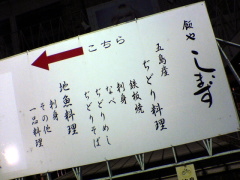 飯や しまず
こちら
五島産
ぢどり料理
鉄板焼
刺身
なべ
ぢどりめし
ぢどりそば
地魚料理
刺身
その他
一品料理